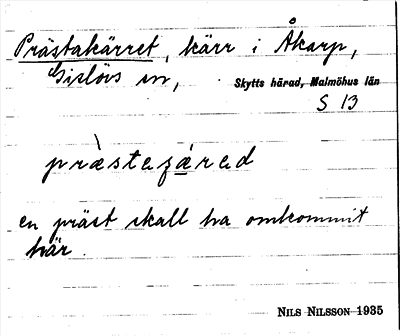 Prästakärret, kärr i Åkarp,
Gislövs sn,
Skytts härad, Malmöhus län
S 13
en präst skall ha omkommit
här.
NILS NILSSON 1935